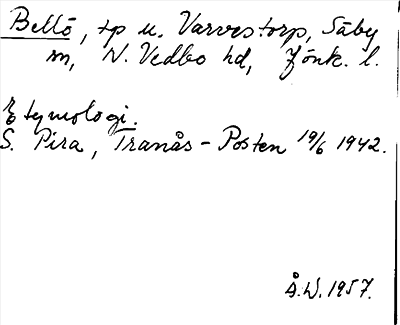 Bellö, tp u. Varvestorp, Säby
sn, N. Vedbo hd, Jönk. l.
Etymologi.
S. Pira, Tranås-Posten 19/6 1942.
Å.W. 1957.